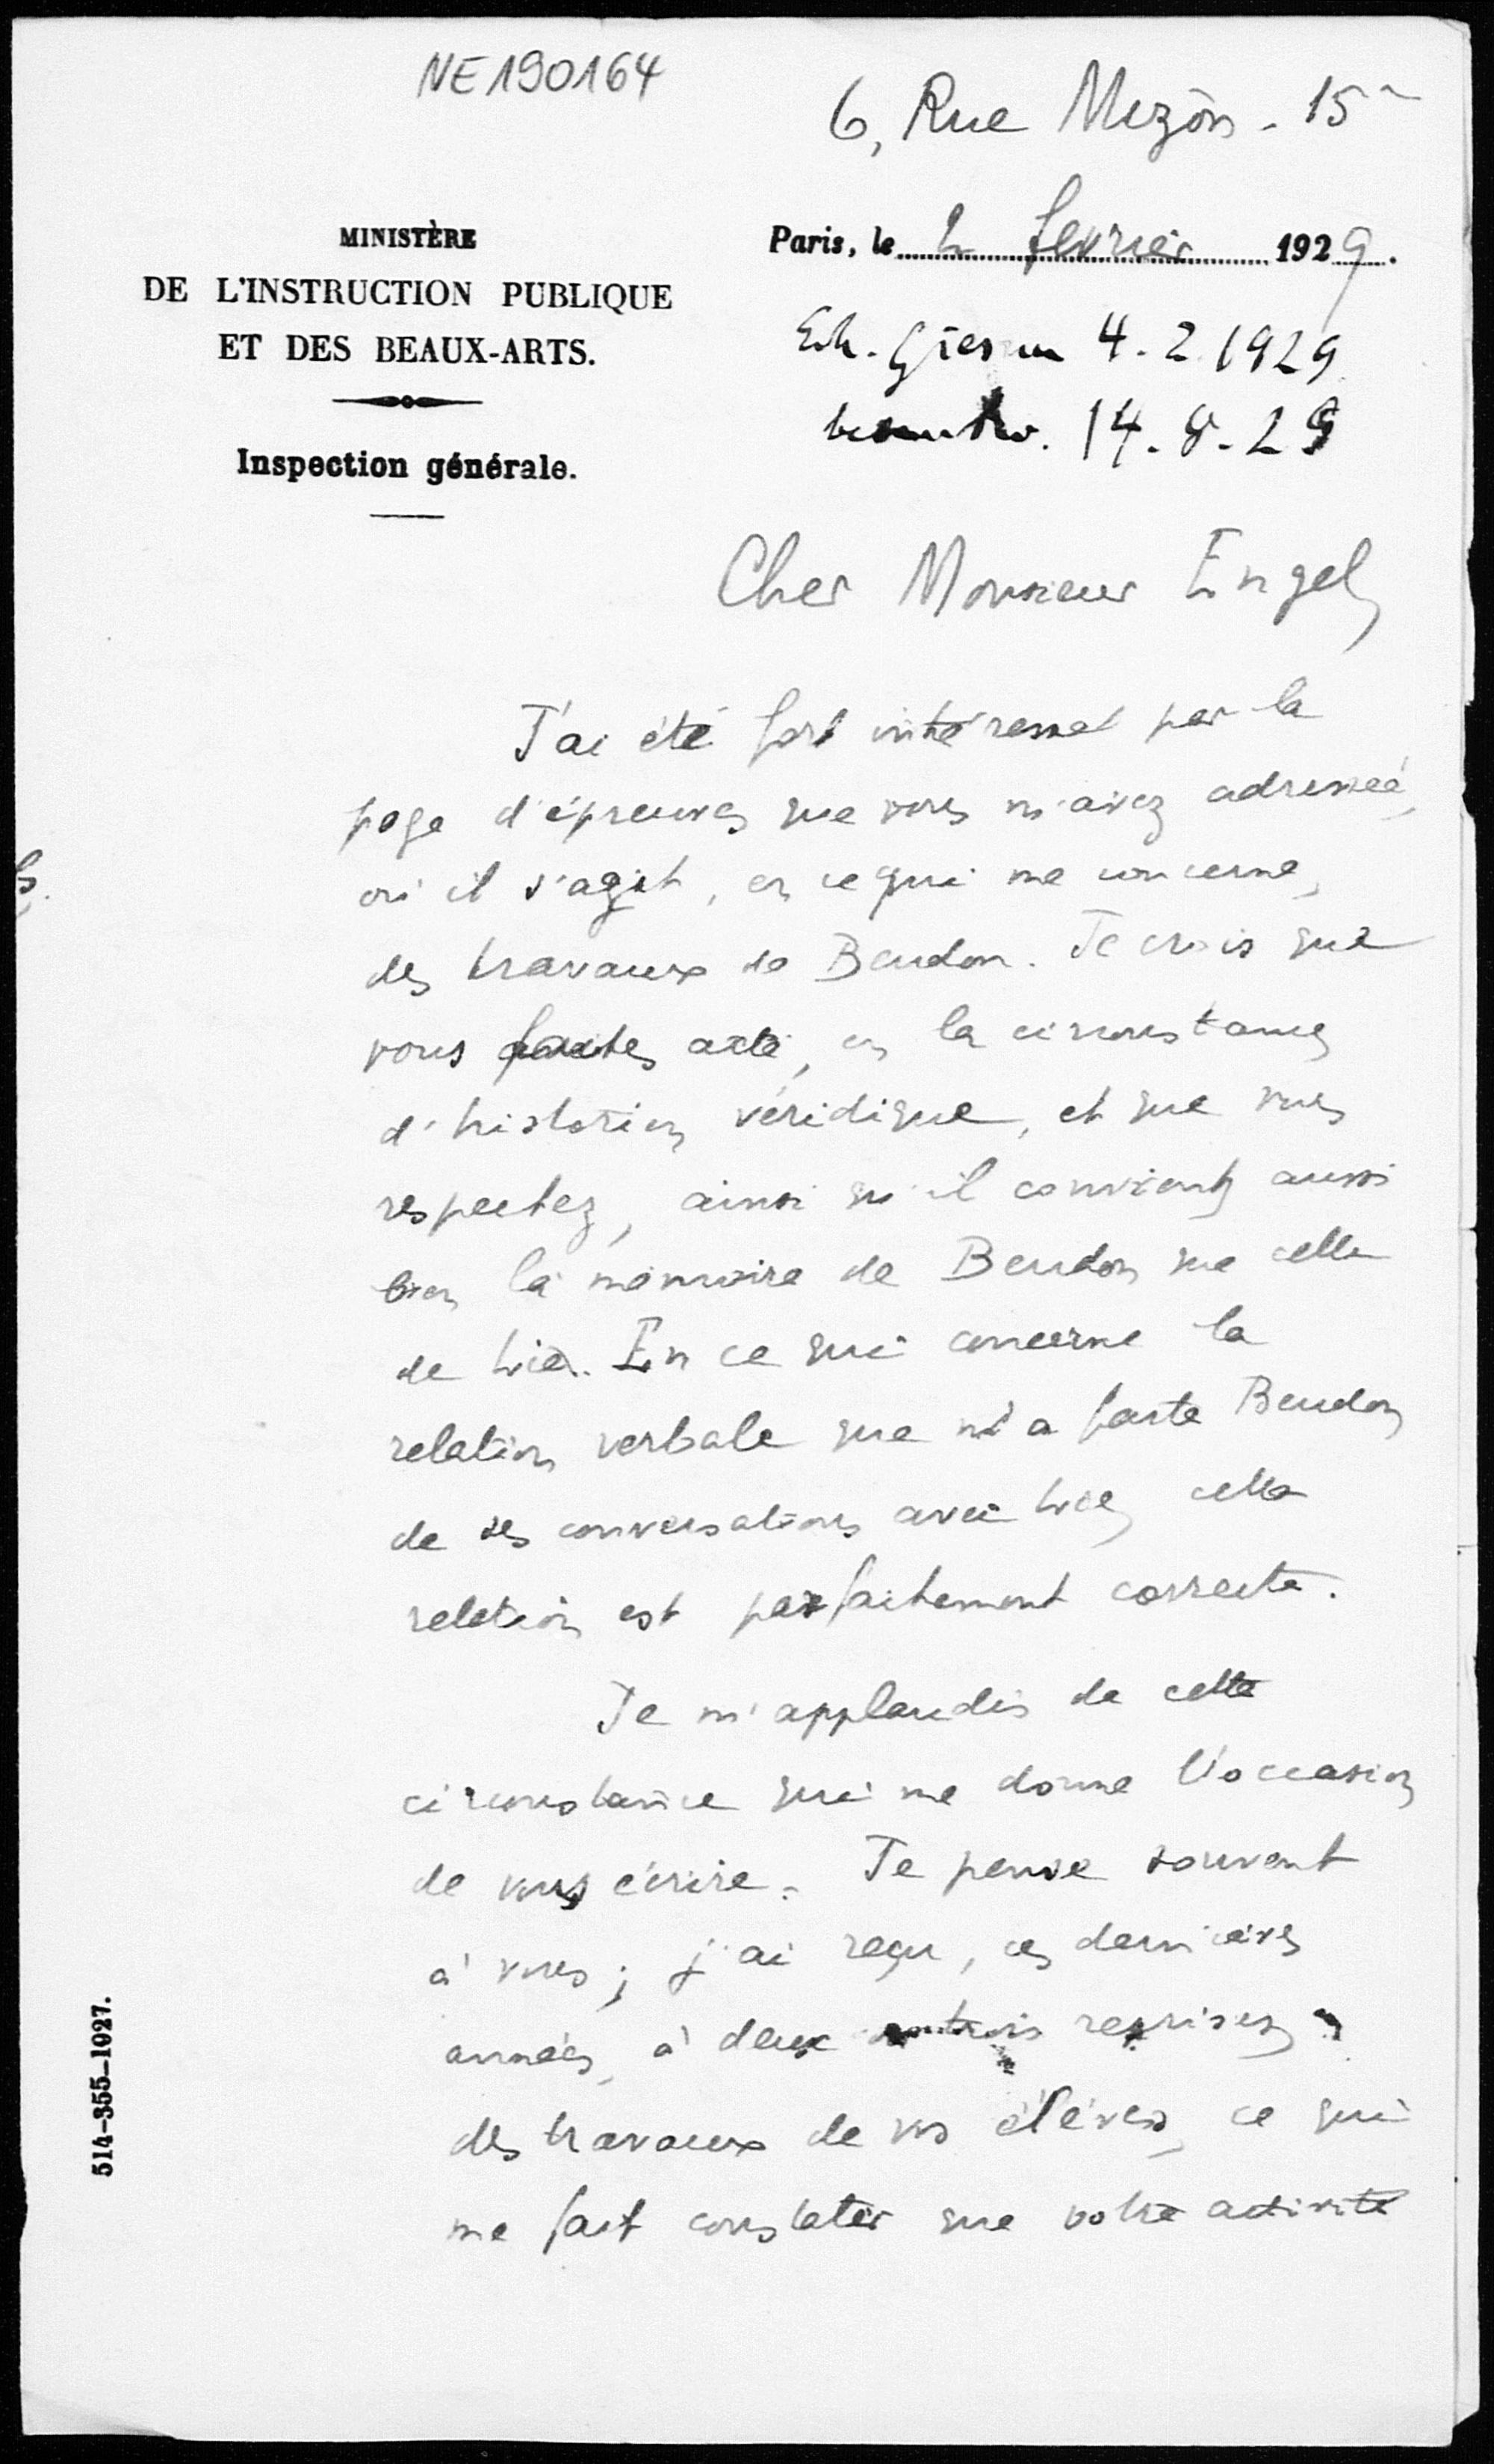 NE190164
6, Rue Mizon - 15e
MINISTÈRE
DE L'INSTRUCTION PUBLIQUE
ET DES BEAUX-ARTS.
Inspection générale.
Paris, le 2 février 1929.
Erh. Giessen 4.2.1929
14.8.29
Cher Monsieur Engel,
J'ai été fort intéressé par la
page d'épreuves que vous m'avez adressée,
où il s'agit, en ce qui me concerne,
des travaux de Beudon. Je crois que
vous faites acte, en la circonstance,
d'historien véridique, et que vous
respectez, ainsi qu'il convient, aussi
bien la mémoire de Beudon que celle
de Lie. En ce qui concerne la
relation verbale que m'a faite Beudon
de ses conversations avec Lie, cette
relation est parfaitement correcte.
Je m'applaudis de cette
circonstance qui me donne l'occasion
de vous écrire. Je pense souvent
à vous ; j'ai reçu, ces dernières
années, à deux ou trois reprises,
des travaux de vos élèves, ce qui
me fait constater que votre activité
514-355-1927.